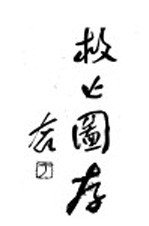 救亡圖存
右